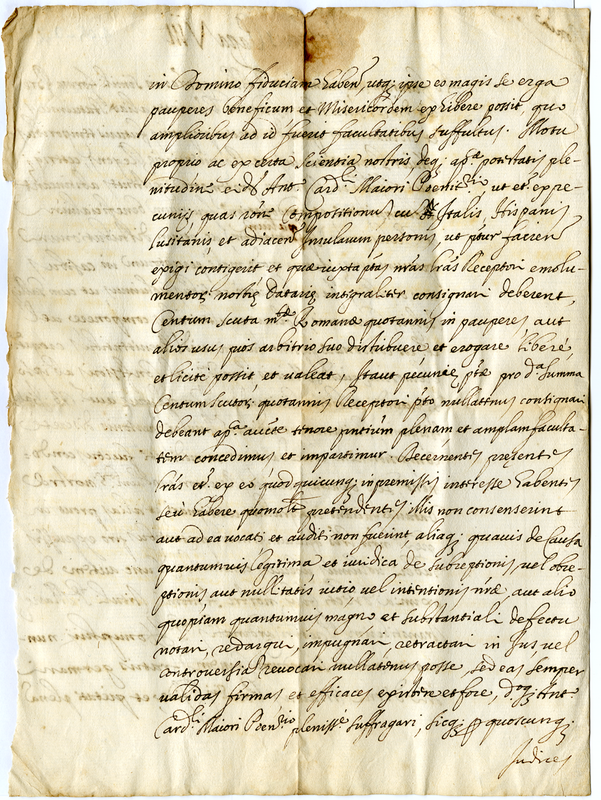 in Domino fiduciam haben̄ utq; ipse eo magis se erga
pauperes beneficum et Misericordem exhibere possit quo
amplioribus ad id fuerit facultatibus suffultus. Motu
proprio ac ex certa scientia nostris, deq; ap.ᶜᵃ potestatis ple-
nitudine e. d. Ant. Card.ˡⁱ Maiori Poenit.ʳⁱᵒ ut et ex pe-
cunijs quas rōne Compositionū cū Italis, Hispanis
Lusitanis, et adiacen̄ Insularum personis ut ptur facien̄
exigi contigerit et quae iuxta ptas nr̄as lr̄as Receptori emolu-
mentor̨ nostrę Datarię integraliter consignari deberent,
Centum scuta mᵗᵃᵉ Romanae quotannis in pauperes aut
alios usus pios arbitrio suo distribuere et erogare libere,
et licite possit et valeat, Itaut pecunię ptae pro dᵃ summa
Centum scutor̨ quotannis Receptori pto nullatenus consignari
debeant apᶜᵃ aucte tenore pntium plenam et amplam faculta-
tem concedimus et impartimur. Decernentes pręsentes
lr̄as et ex eo quod quicunq; in premissis interesse habentes
seu habere quomolᵗ pretendentes illis non consenserint
aut ad ea vocati et auditi non fuerint, aliaq; quavis de Causa
quantumvis legitima et iuridica de subreptionis vel obre-
ptionis aut nullitatis vitio vel intentionis nrae, aut alio
quopiam quantumvis magno et substantiali defectu
notari, redargui, impugnari, retractari in Jus vel
controversia revocari nullatenus posse, sed eas semper
validas firmas et efficaces existere et fore, d.ᵒq; Ant.
Card.ˡⁱ Maiori Poen.ʳⁱᵒ plenissᵉ suffragari, sicq; p quoscunq;
Judices